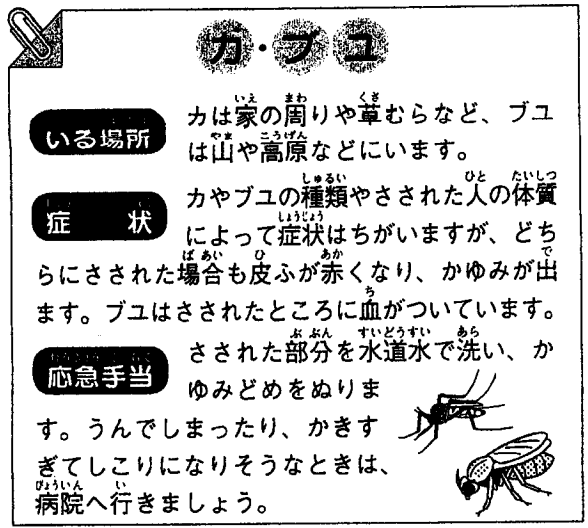 カ・ブユ
いる場所
カは家の周りや草むらなど、ブユ
は山や高原などにいます。
症状
カやブユの種類やさされた人の体質
によって症状はちがいますが、どち
らにさされた場合も皮ふが赤くなり、かゆみが出
ます。ブユはさされたところに血がついています。
応急手当
さされた部分を水道水で洗い、か
ゆみどめをぬりま
す。うんでしまったり、かきす
ぎてしこりになりそうなときは、
病院へ行きましょう。